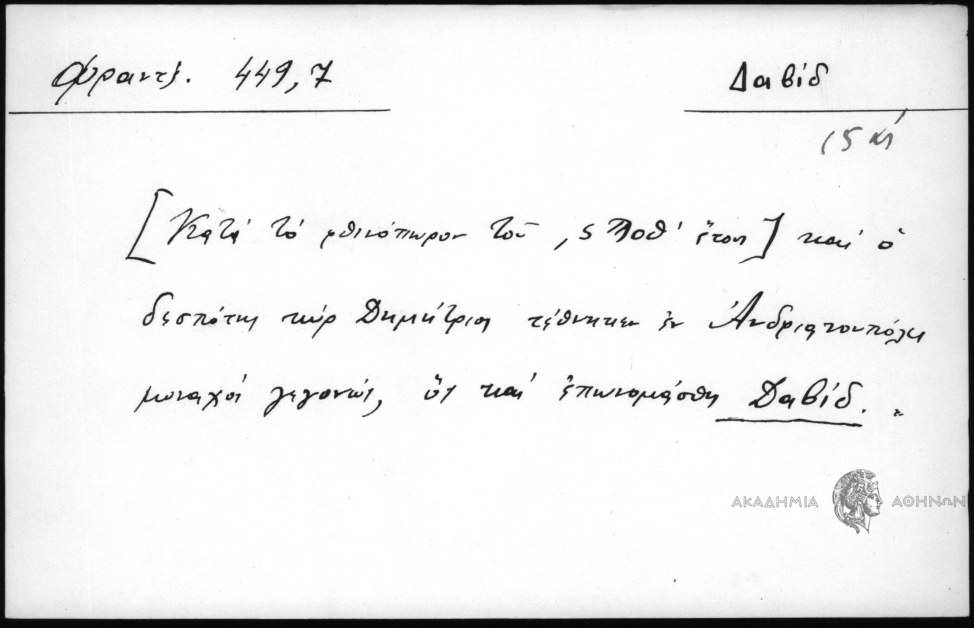 Φραντζ. 449,7
Δαβίδ
15 αι
[Κατά τό φθινόπωρον τοῦ ,ϛϡοθ' ἔτους] καί ὁ
δεσπότης κύρ Δημήτριος τέθνηκεν ἐν Ἀνδριανουπόλει
μοναχός γεγονώς, ὅς καί ἐπωνομάσθη Δαβίδ.
ΑΚΑΔΗΜΙΑ ΑΘΗΝΩΝ